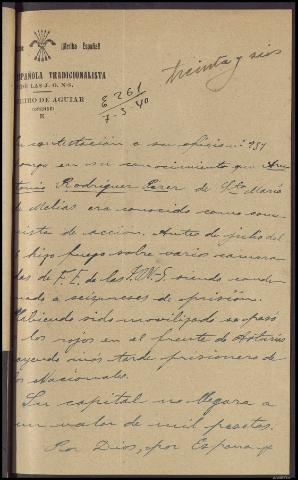 ¡Arriba España!
treinta y seis
PAÑOLA TRADICIONALISTA
DE LAS J. O. N-S.
EIRO DE AGUIAR
(ORENSE)
E 261
7-3-40
contestación a su oficio nº 951
pongo en su conocimiento que An
tonio Rodríguez Pérez de Sta María
de Melias era conocido como comu
nista de acción. Antes de julio del
hizo fuego sobre varios camara
das de F. E. de las J.O.N-S. siendo conde
nado a seis meses de prisión.
Habiendo sido movilizado se pasó
a los rojos en el frente de Asturias
cayendo más tarde prisionero de
los Nacionales.
Su capital no llegara a
un valor de mil pesetas.
Por Dios, por España y